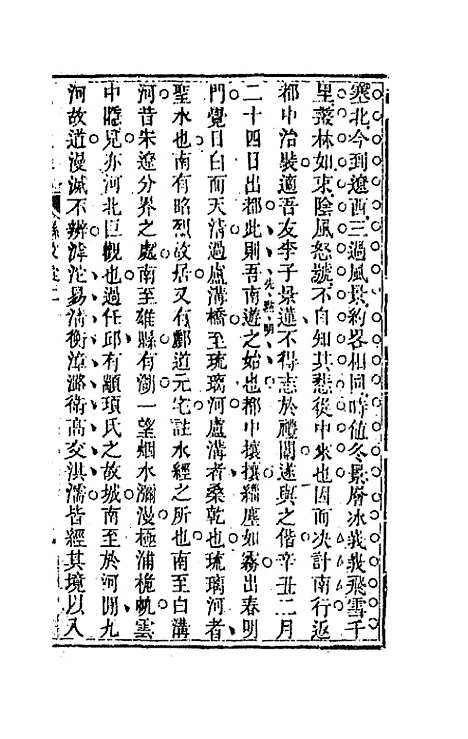 塞北今到遼西三過風景約畧相同時值冬景層冰峩峩飛雪千
里叢林如束陰風怒號不自知其悲從中來也因而決計南行返
都中治裝適吾友李子景蓮不得志於禮闈遂與之偕辛丑二月
先點明
二十四日出都此則吾南遊之始也都中攘攘緇塵如霧出春明
門覺日白而天清過盧溝橋至琉璃河盧溝者桑乾也琉璃河者
聖水也南有昭烈故居又有酈道元宅註水經之所也南至白溝
河昔朱遼分界之處南至雄縣有湖一望烟水瀰漫極浦桅帆雲
中隱見亦河北巨觀也過任邱有顓頊氏之故城南至於河間九
河故道漫滅不辨滹沱易淸衡漳潞衛高交淇濡皆經其境以入